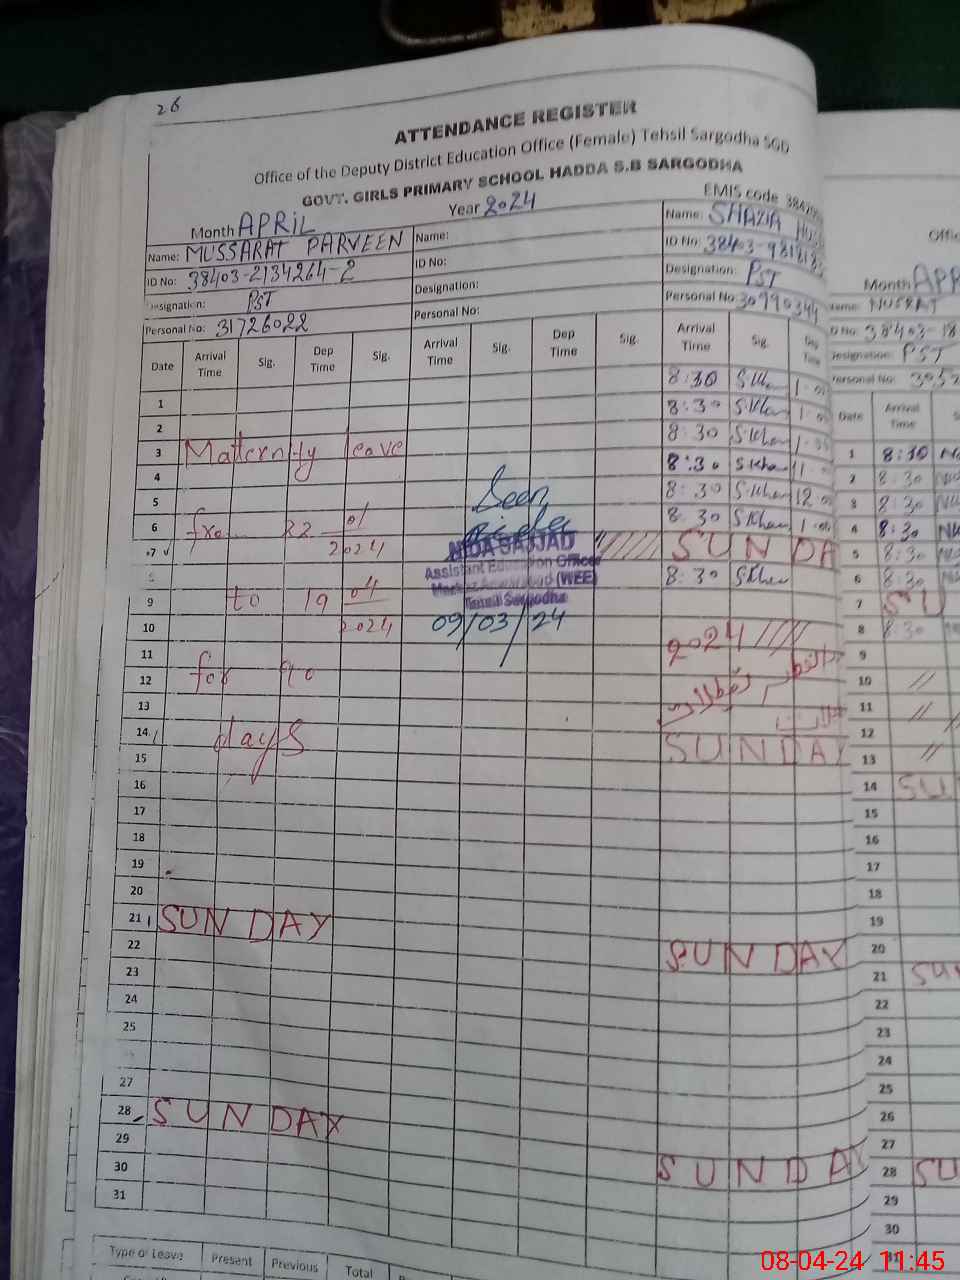 26
ATTENDANCE REGISTER
Office of the Deputy District Education Office (Female) Tehsil Sargodha SGD
GOVT. GIRLS PRIMARY SCHOOL HADDA S.B SARGODHA
Month APRIL Year 2024 EMIS code
Name: MUSSARAT PARVEEN Name: Name: SHAZIA
ID No: 38403-2134264-2 ID No: ID No: 38403-
Designation: PST Designation: Designation: PST
Personal No: 31726022 Personal No: Personal No: 30990344
Date Arrival Time Sig. Dep Time Sig. Arrival Time Sig. Dep Time Sig. Arrival Time Sig. Dep Time
1 8:30 S.Khan
2 8:30 S.Khan
3 Maternity leave 8:30 S.Khan
4 8:30 S.Khan
5 Seen 8:30 S.Khan
6 from 22 01/2024 8:30 S.Khan
7 SUNDA
NIDA SAJJAD
Assistant Education Officer
(WEE)
Tehsil Sargodha
8:30 S.Khan
9 to 19 04/2024
10 09/03/24
11 2024
12 for 90
13
14 days SUNDAY
15
16
17
18
19
20
21 SUNDAY SUNDAY
22
23
24
25
27
28 SUNDAY SUNDAY
29
30
31
Type of Leave Present Previous Total
Month APR
NUSRAT
38403-18
Designation: PST
Personal No:
Date Arrival Time
1 8:30
2 8:30
3 8:30
4 8:30
5 8:30
6 8:30
7 SU
8 8:30
9
10 //
11 //
12
13 //
14 SU
15
16
17
18
19
20
21 SU
22
23
24
25
26
27
28 SU
29
30
31
08-04-24 11:45